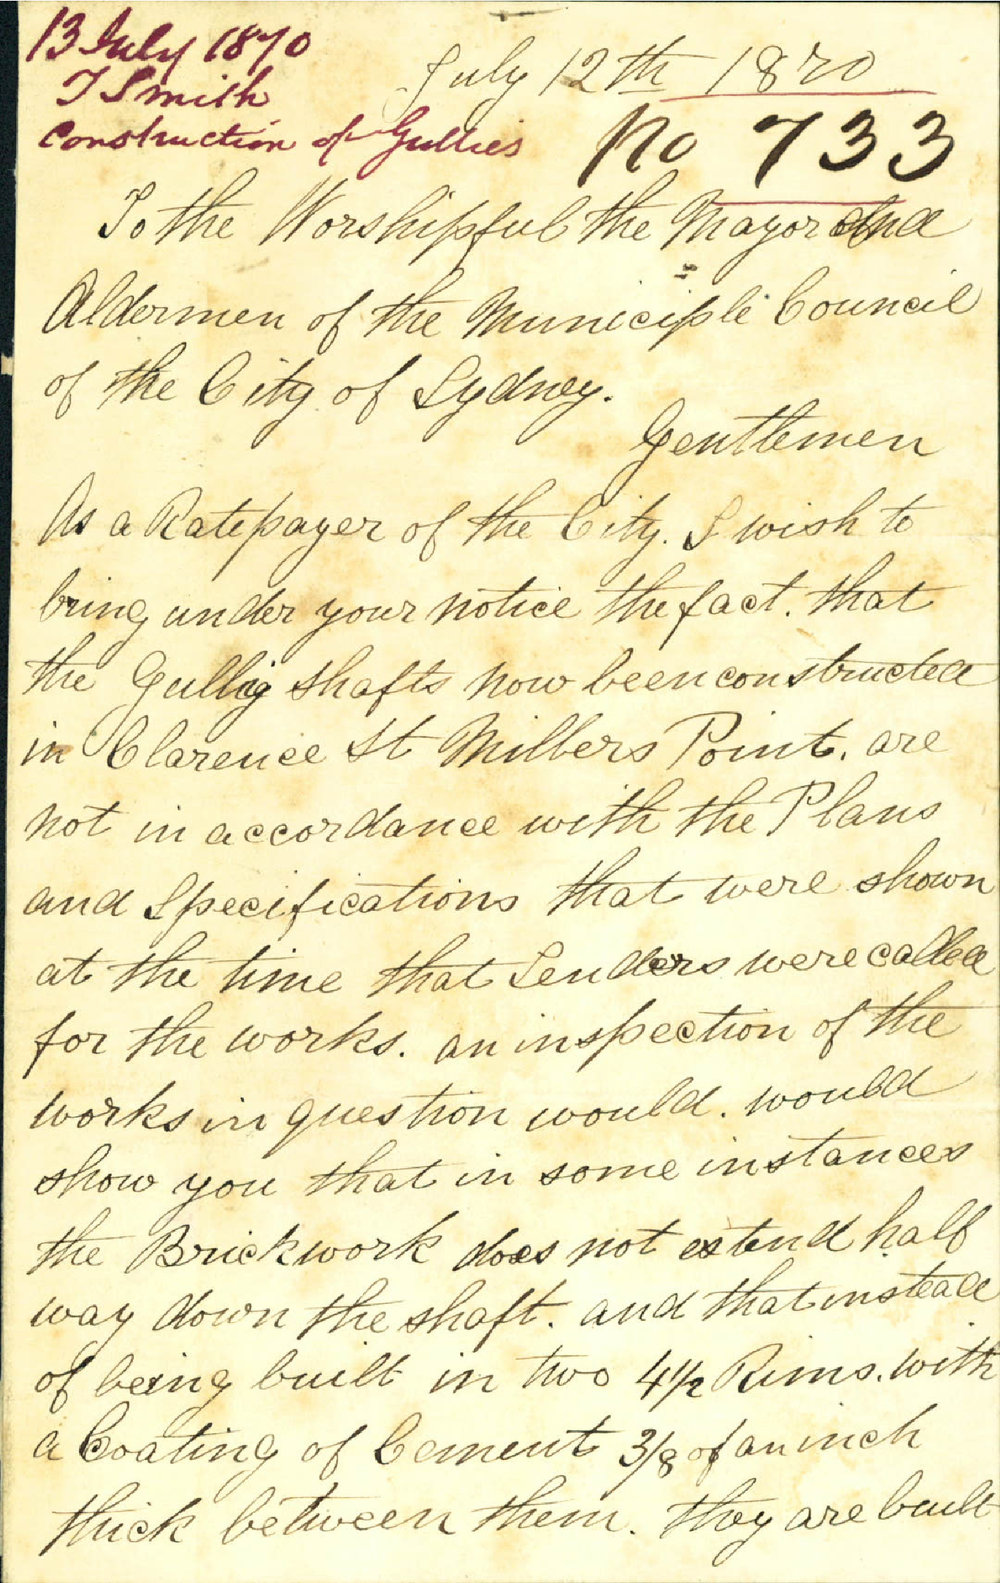 13 July 1870
T Smith
Construction of Gullies
July 12th 1870
No 733
To the Worshipful the Mayor and
Aldermen of the Municiple Council
of the City of Sydney.
Gentlemen
As a Ratepayer of the City. I wish to
bring under your notice the fact. that
the Gully shafts now been constructed
in Clarence St Millers Point. are
not in accordance with the Plans
and Specifications that were shown
at the time that Tenders were called
for the works. an inspection of the
works in question would. would
show you that in some instances
the Brickwork does not extend half
way down the shaft. and that instead
of being built in two 4½ Rims. with
a Coating of Cement 3/8 of an inch
thick between them. they are built